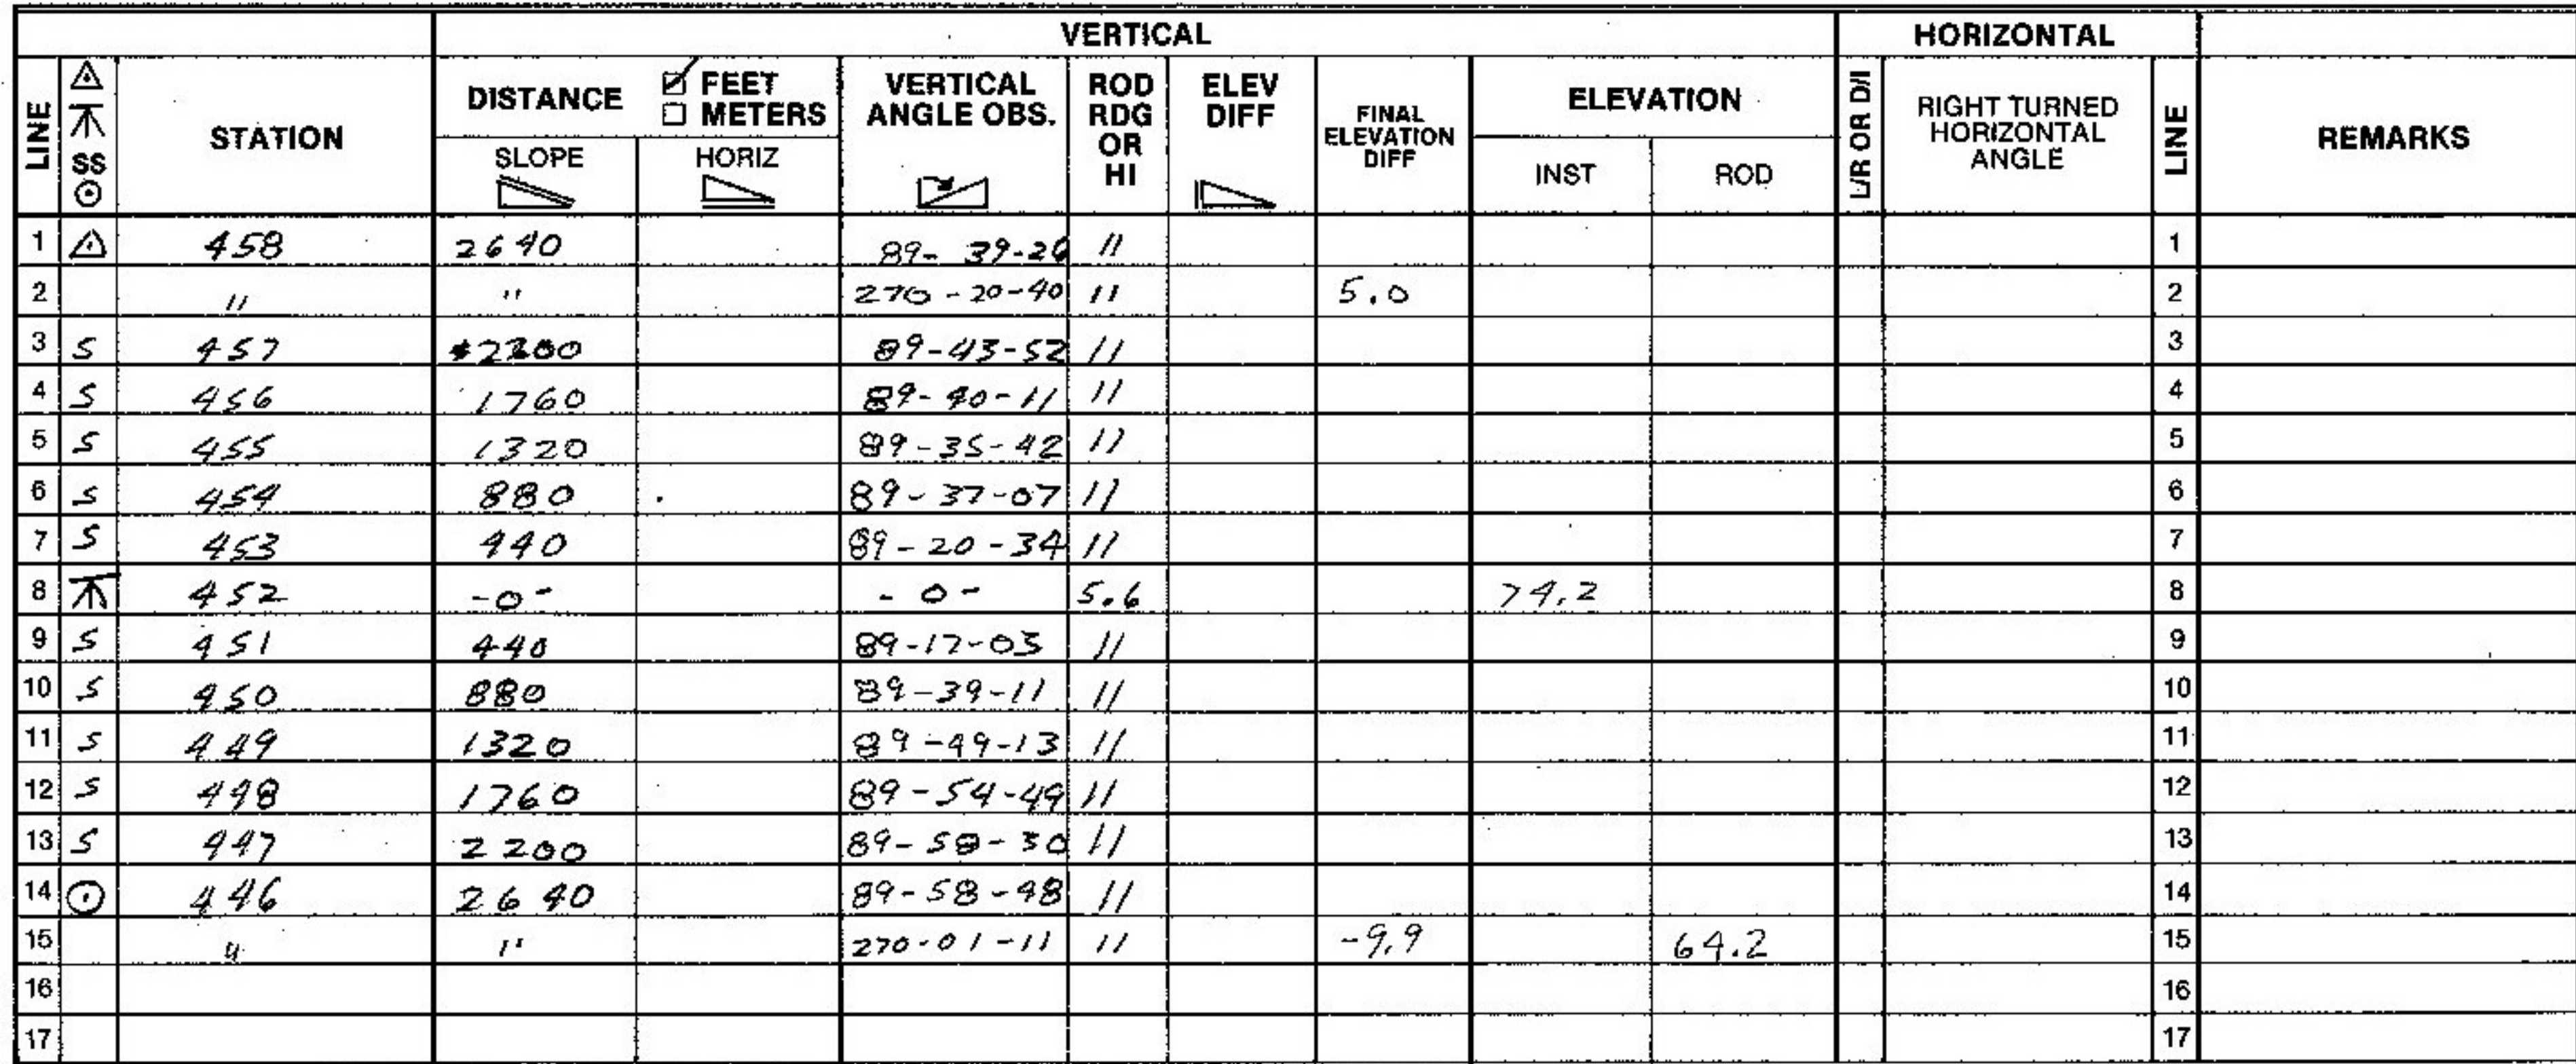 VERTICAL HORIZONTAL
LINE SS STATION DISTANCE ☑ FEET ☐ METERS SLOPE HORIZ VERTICAL ANGLE OBS. ROD RDG OR HI ELEV DIFF FINAL ELEVATION DIFF ELEVATION INST ROD L/R OR D/I RIGHT TURNED HORIZONTAL ANGLE LINE REMARKS
1 458 2640 89-39-20 11 1
2 " " 270-20-40 11 5.0 2
3 S 457 2200 89-43-52 11 3
4 S 456 1760 89-40-11 11 4
5 S 455 1320 89-35-42 11 5
6 S 454 880 89-37-07 11 6
7 S 453 440 89-20-34 11 7
8 452 -0- -0- 5.6 74.2 8
9 S 451 440 89-17-03 11 9
10 S 450 880 89-39-11 11 10
11 S 449 1320 89-49-13 11 11
12 S 448 1760 89-54-49 11 12
13 S 447 2200 89-58-30 11 13
14 446 2640 89-58-48 11 14
15 " " 270-01-11 11 -9.9 64.2 15
16 16
17 17